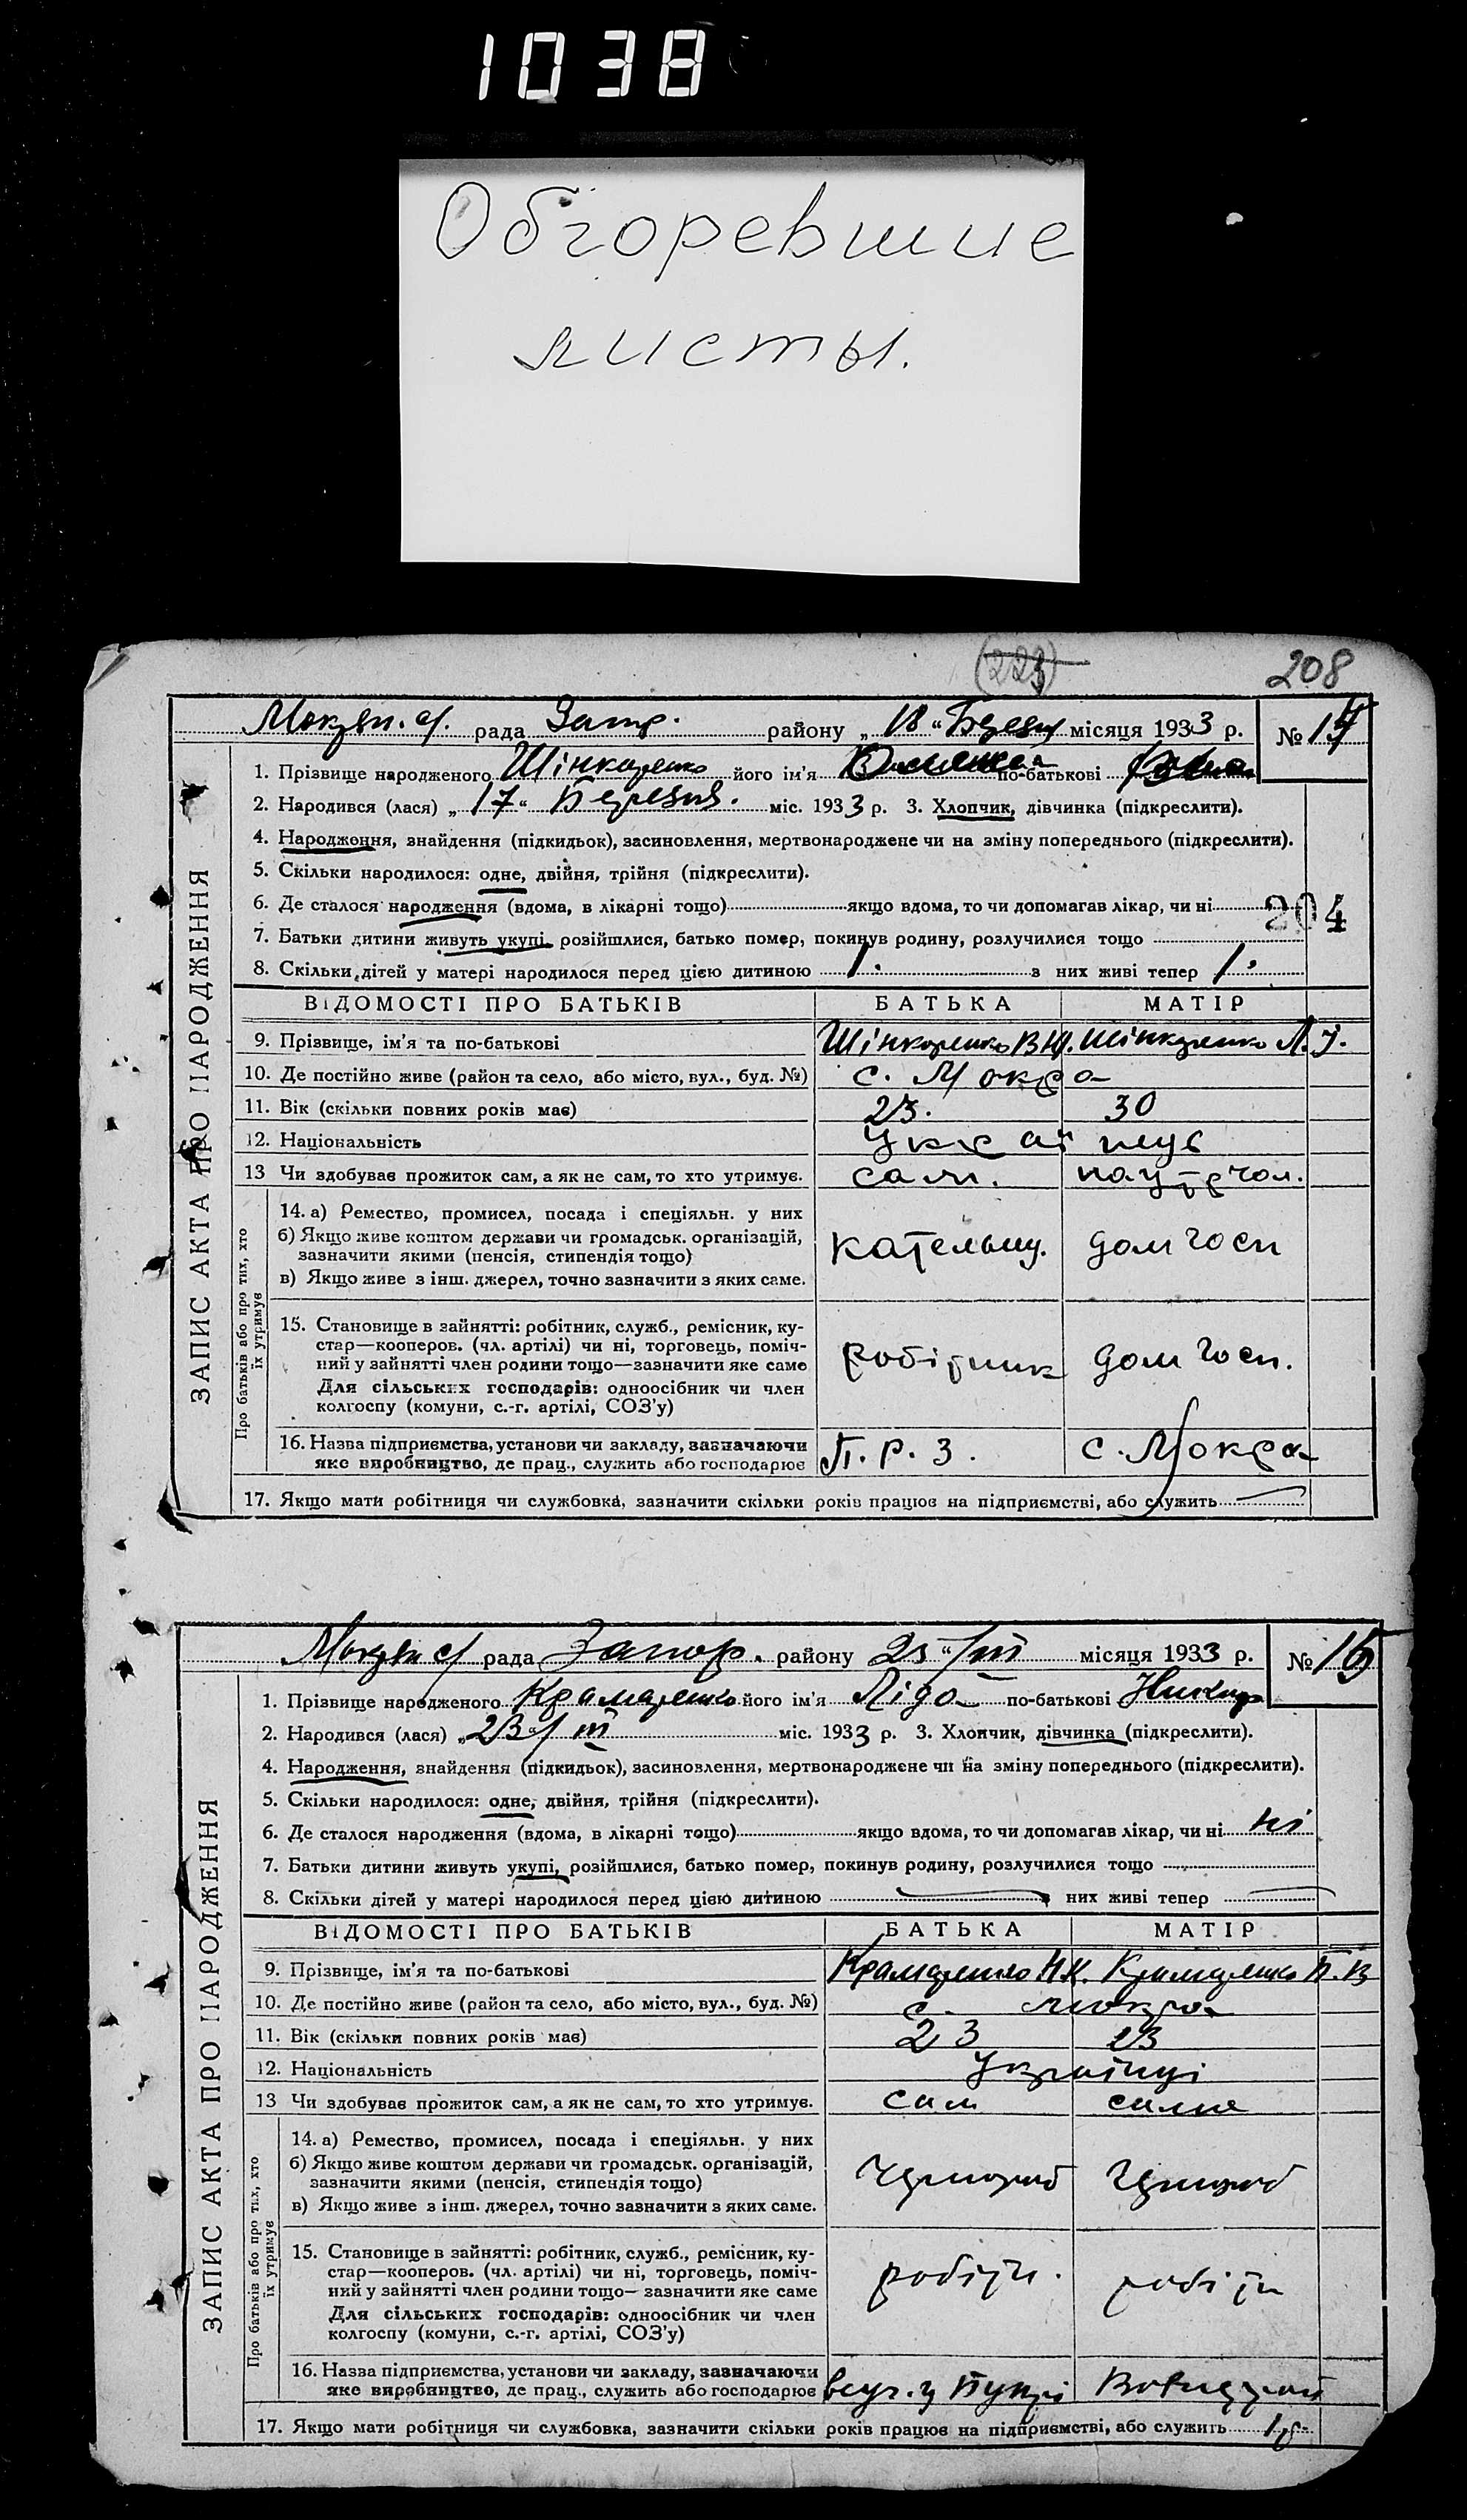 1038
Обгоревшие
листы.
(223)
208
Мокрян. с/. рада Запор. району „ 18 “ Березня місяця 1933 р. № 14
1. Прізвище народженого Шінкаренко його ім'я по-батькові
2. Народився (лася) „ 17 “ Березня. міс. 1933 р. 3. Хлопчик, дівчинка (підкреслити).
4. Народження, знайдення (підкидьок), засиновлення, мертвонароджене чи на зміну попереднього (підкреслити).
5. Скільки народилося: одне, двійня, трійня (підкреслити).
6. Де сталося народження (вдома, в лікарні тощо) якщо вдома, то чи допомагав лікар, чи ні
204
7. Батьки дитини живуть укупі, розійшлися, батько помер, покинув родину, розлучилися тощо
8. Скільки дітей у матері народилося перед цією дитиною 1. з них живі тепер 1.
ВІДОМОСТІ ПРО БАТЬКІВ БАТЬКА МАТІР
9. Прізвище, ім'я та по-батькові Шінкаренко Шінкаренко Л. У.
10. Де постійно живе (район та село, або місто, вул., буд. №) с. Мокра
11. Вік (скільки повних років має) 23. 30
12. Національність
13 Чи здобуває прожиток сам, а як не сам, то хто утримує. сам. чол.
14. а) Ремество, промисел, посада і спеціяльн. у них
б) Якщо живе коштом держави чи громадськ. організацій,
зазначити якими (пенсія, стипендія тощо)
в) Якщо живе з інш. джерел, точно зазначити з яких саме.
дом госп
15. Становище в зайнятті: робітник, служб., ремісник, ку-
стар—кооперов. (чл. артілі) чи ні, торговець, поміч-
ний у зайнятті член родини тощо—зазначити яке саме
Для сільських господарів: одноосібник чи член
колгоспу (комуни, с.-г. артілі, СОЗ'у)
робітник дом госп.
16. Назва підприємства, установи чи закладу, зазначаючи
яке виробництво, де прац., служить або господарює
П. Р. З. с. Мокра
17. Якщо мати робітниця чи службовка, зазначити скільки років працює на підприємстві, або служить
ЗАПИС АКТА ПРО НАРОДЖЕННЯ
Про батьків або про тих, хто
їх утримує
Мокрян с/ рада Запор. району 25 “/III місяця 1933 р. № 15
1. Прізвище народженого Крамаренко його ім'я Ліда по-батькові
2. Народився (лася) „ 23 “/ III міс. 1933 р. 3. Хлопчик, дівчинка (підкреслити).
4. Народження, знайдення (підкидьок), засиновлення, мертвонароджене чи на зміну попереднього (підкреслити).
5. Скільки народилося: одне, двійня, трійня (підкреслити).
6. Де сталося народження (вдома, в лікарні тощо) якщо вдома, то чи допомагав лікар, чи ні ні
7. Батьки дитини живуть укупі, розійшлися, батько помер, покинув родину, розлучилися тощо
8. Скільки дітей у матері народилося перед цією дитиною з них живі тепер
ВІДОМОСТІ ПРО БАТЬКІВ БАТЬКА МАТІР
9. Прізвище, ім'я та по-батькові Крамаренко Н К. Крамаренко П. В
10. Де постійно живе (район та село, або місто, вул., буд. №) с. Мокра
11. Вік (скільки повних років має) 23 23
12. Національність Українці
13 Чи здобуває прожиток сам, а як не сам, то хто утримує. сам сама
14. а) Ремество, промисел, посада і спеціяльн. у них
б) Якщо живе коштом держави чи громадськ. організацій,
зазначити якими (пенсія, стипендія тощо)
в) Якщо живе з інш. джерел, точно зазначити з яких саме.
Чорнороб Чорнороб
15. Становище в зайнятті: робітник, служб., ремісник, ку-
стар—кооперов. (чл. артілі) чи ні, торговець, поміч-
ний у зайнятті член родини тощо—зазначити яке саме
Для сільських господарів: одноосібник чи член
колгоспу (комуни, с.-г. артілі, СОЗ'у)
робітн. робітн
16. Назва підприємства, установи чи закладу, зазначаючи
яке виробництво, де прац., служить або господарює
17. Якщо мати робітниця чи службовка, зазначити скільки років працює на підприємстві, або служить
ЗАПИС АКТА ПРО НАРОДЖЕННЯ
Про батьків або про тих, хто
їх утримує